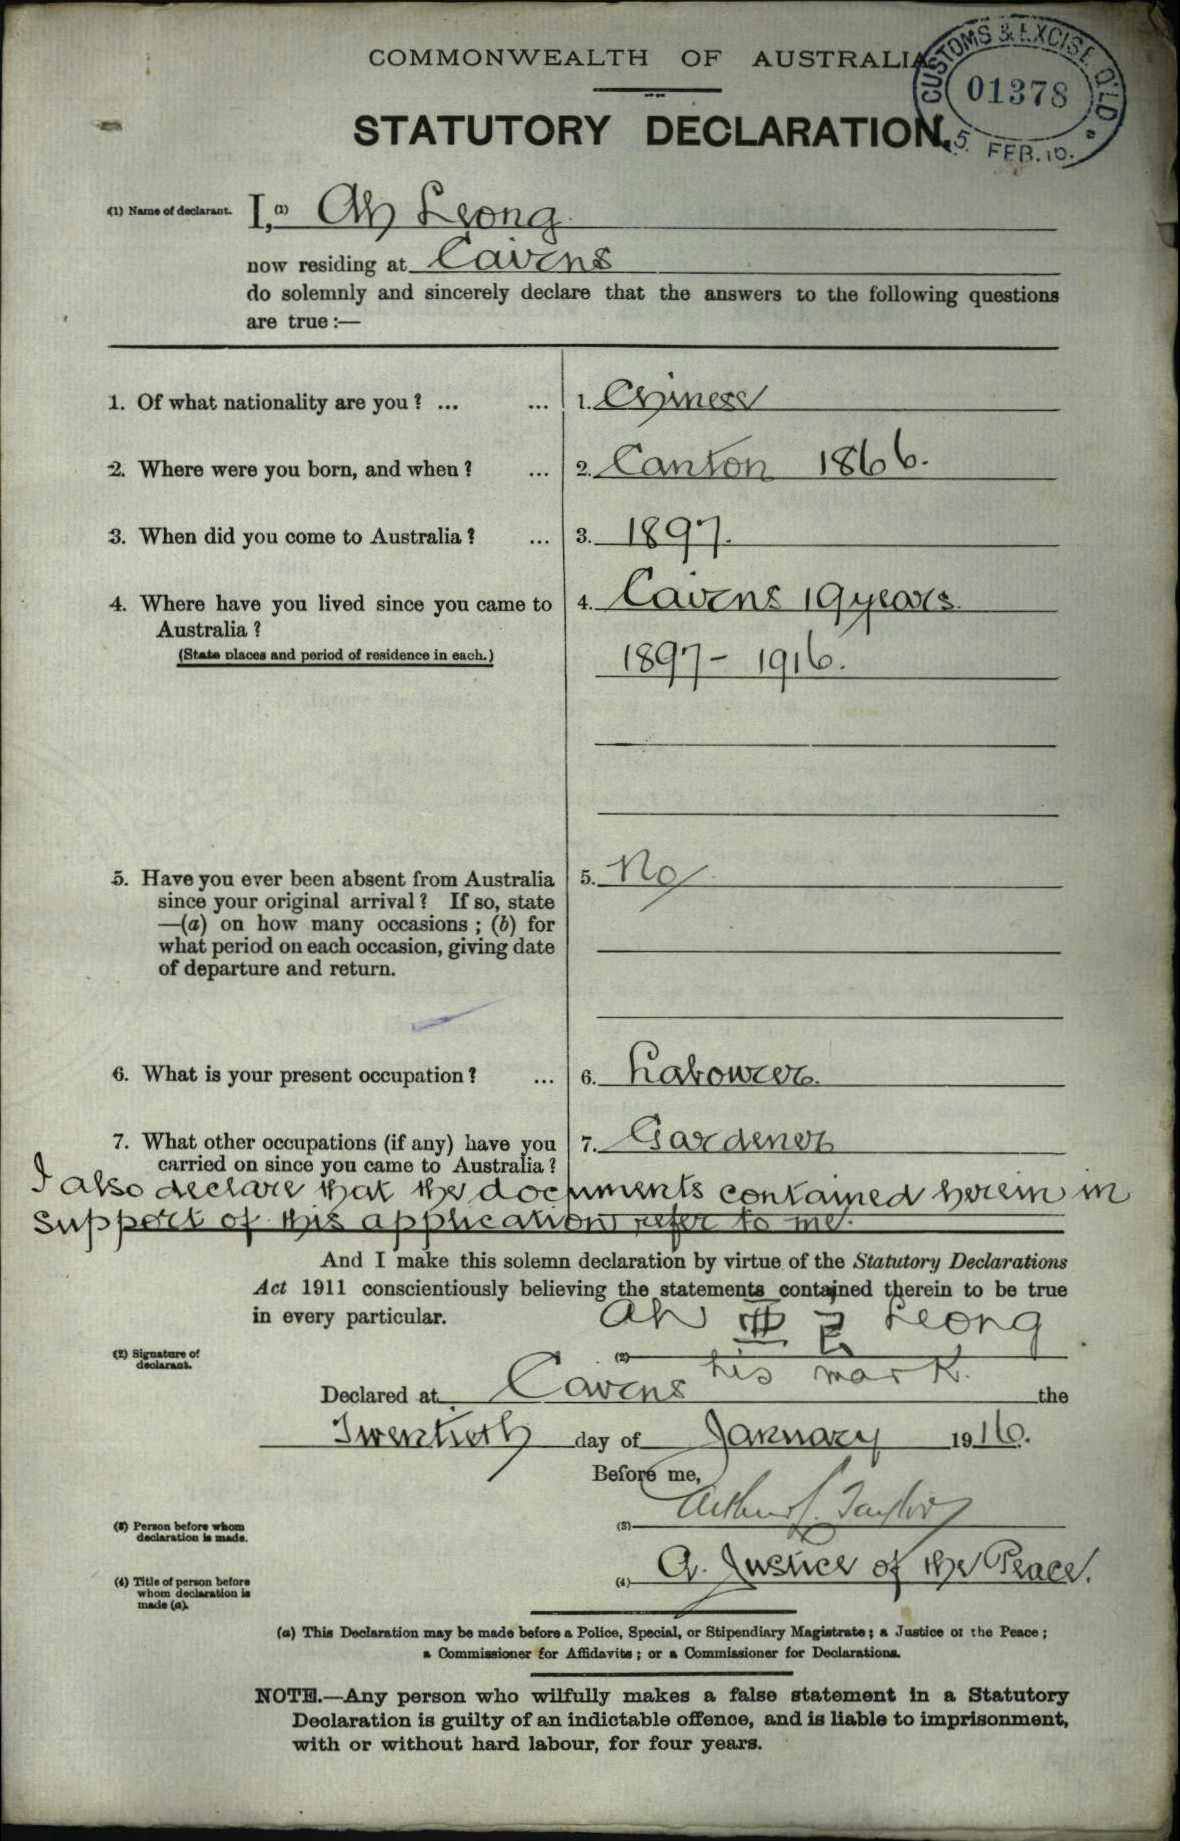 COMMONWEALTH OF AUSTRALIA
CUSTOMS & EXCISE Q'LD
01378
5 FEB. 16.
STATUTORY DECLARATION.
(1) Name of declarant. I, (1) Ah Leong
now residing at Cairns
do solemnly and sincerely declare that the answers to the following questions
are true :—
1. Of what nationality are you ? ... ... 1. Chinese
2. Where were you born, and when ? ... 2. Canton 1866.
3. When did you come to Australia ? ... 3. 1897.
4. Where have you lived since you came to 4. Cairns 19 years.
Australia ?
(State places and period of residence in each.) 1897 - 1916.
5. Have you ever been absent from Australia 5. No
since your original arrival ? If so, state
—(a) on how many occasions ; (b) for
what period on each occasion, giving date
of departure and return.
6. What is your present occupation ? ... 6. Labourer.
7. What other occupations (if any) have you 7. Gardener
carried on since you came to Australia ?
I also declare that the documents contained herein in
support of this application refer to me.
And I make this solemn declaration by virtue of the Statutory Declarations
Act 1911 conscientiously believing the statements contained therein to be true
in every particular.
Ah 亜 Leong
(2) Signature of
declarant.
(2)
his mark.
Declared at Cairns the
Twentieth day of January 1916.
Before me,
(3) Person before whom
declaration is made.
(3) Arthur J. Taylor
(4) Title of person before
whom declaration is
made (a).
(4) A. Justice of the Peace.
(a) This Declaration may be made before a Police, Special, or Stipendiary Magistrate ; a Justice of the Peace ;
a Commissioner for Affidavits ; or a Commissioner for Declarations.
NOTE.—Any person who wilfully makes a false statement in a Statutory
Declaration is guilty of an indictable offence, and is liable to imprisonment,
with or without hard labour, for four years.